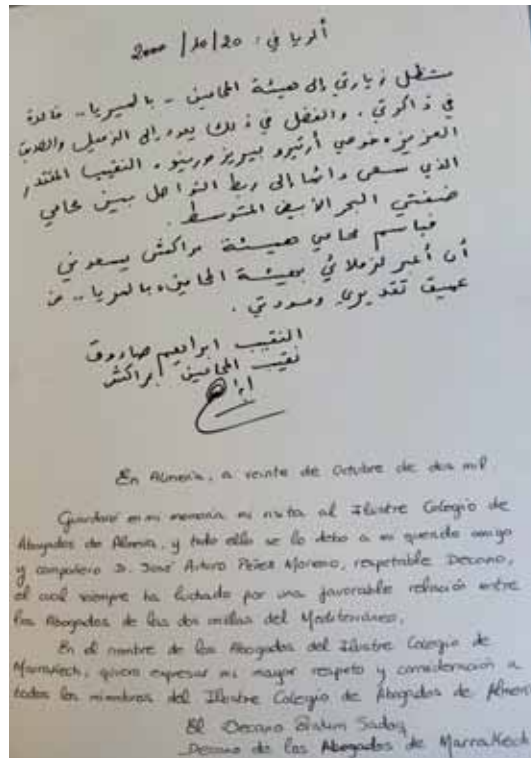 ألمريا في: 20/10/2000
ستظل زيارتي إلى هيئة المحامين - بالميريا.. خالدة
في ذاكرتي. والفضل في ذلك يعود إلى الزميل والصديق
العزيز خوصي أرتيرو بيريز مورينو. النقيب المقتدر
الذي سعى دائما إلى ربط التواصل بين محامي
ضفتي البحر الأبيض المتوسط.
فباسم محامي هيئة مراكش يسعدني
أن أعبر لزملائي بهيئة المحامين بالمريا.. عن
عميق تقديري ومودتي.
النقيب ابراهيم صادوق
نقيب المحامين بمراكش
En Almería, a veinte de Octubre de dos mil.
Guardaré en mi memoria mi visita al Ilustre Colegio de
Abogados de Almería, y todo ello se lo debo a mi querido amigo
y compañero D. José Arturo Pérez Moreno, respetable Decano,
el cual siempre ha luchado por una favorable relación entre
los Abogados de las dos orillas del Mediterráneo.
En el nombre de los Abogados del Ilustre Colegio de
Marrakech, quiero expresar mi mayor respeto y consideración a
todos los miembros del Ilustre Colegio de Abogados de Almería
El Decano Brahim Sadoq
Decano de los Abogados de Marrakech